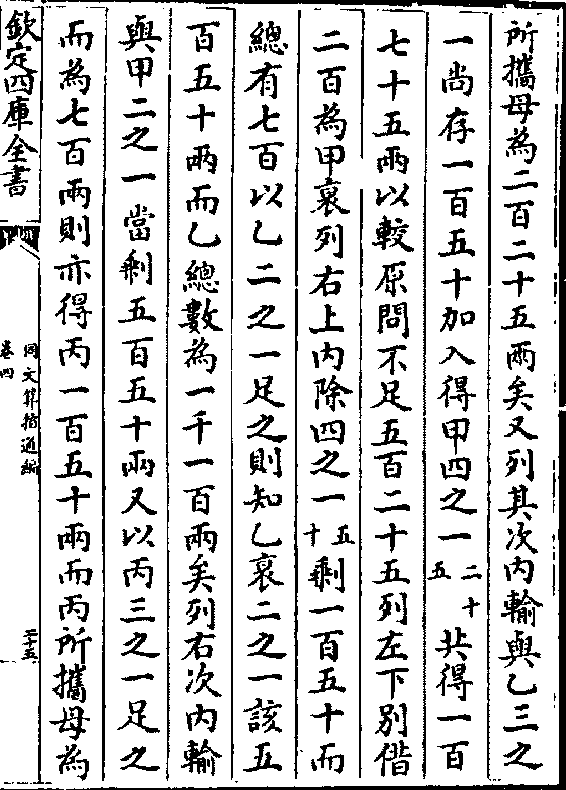 所攜母為二百二十五兩矣又列其次内輸與乙三之
一尚存一百五十加入得甲四之一二十五共得一百
七十五兩以較原問不足五百二十五列左下别偕
二百為甲衰列右上内除四之一五十剩一百五十而
總有七百以乙二之一足之則知乙衰二之一該五
百五十兩而乙總數為一千一百兩矣列右次内輸
與甲二之一當剩五百五十兩又以丙三之一足之
而為七百兩則亦得丙一百五十兩而丙所攜母為
欽定四庫全書
同文算指通編
卷四
三十五